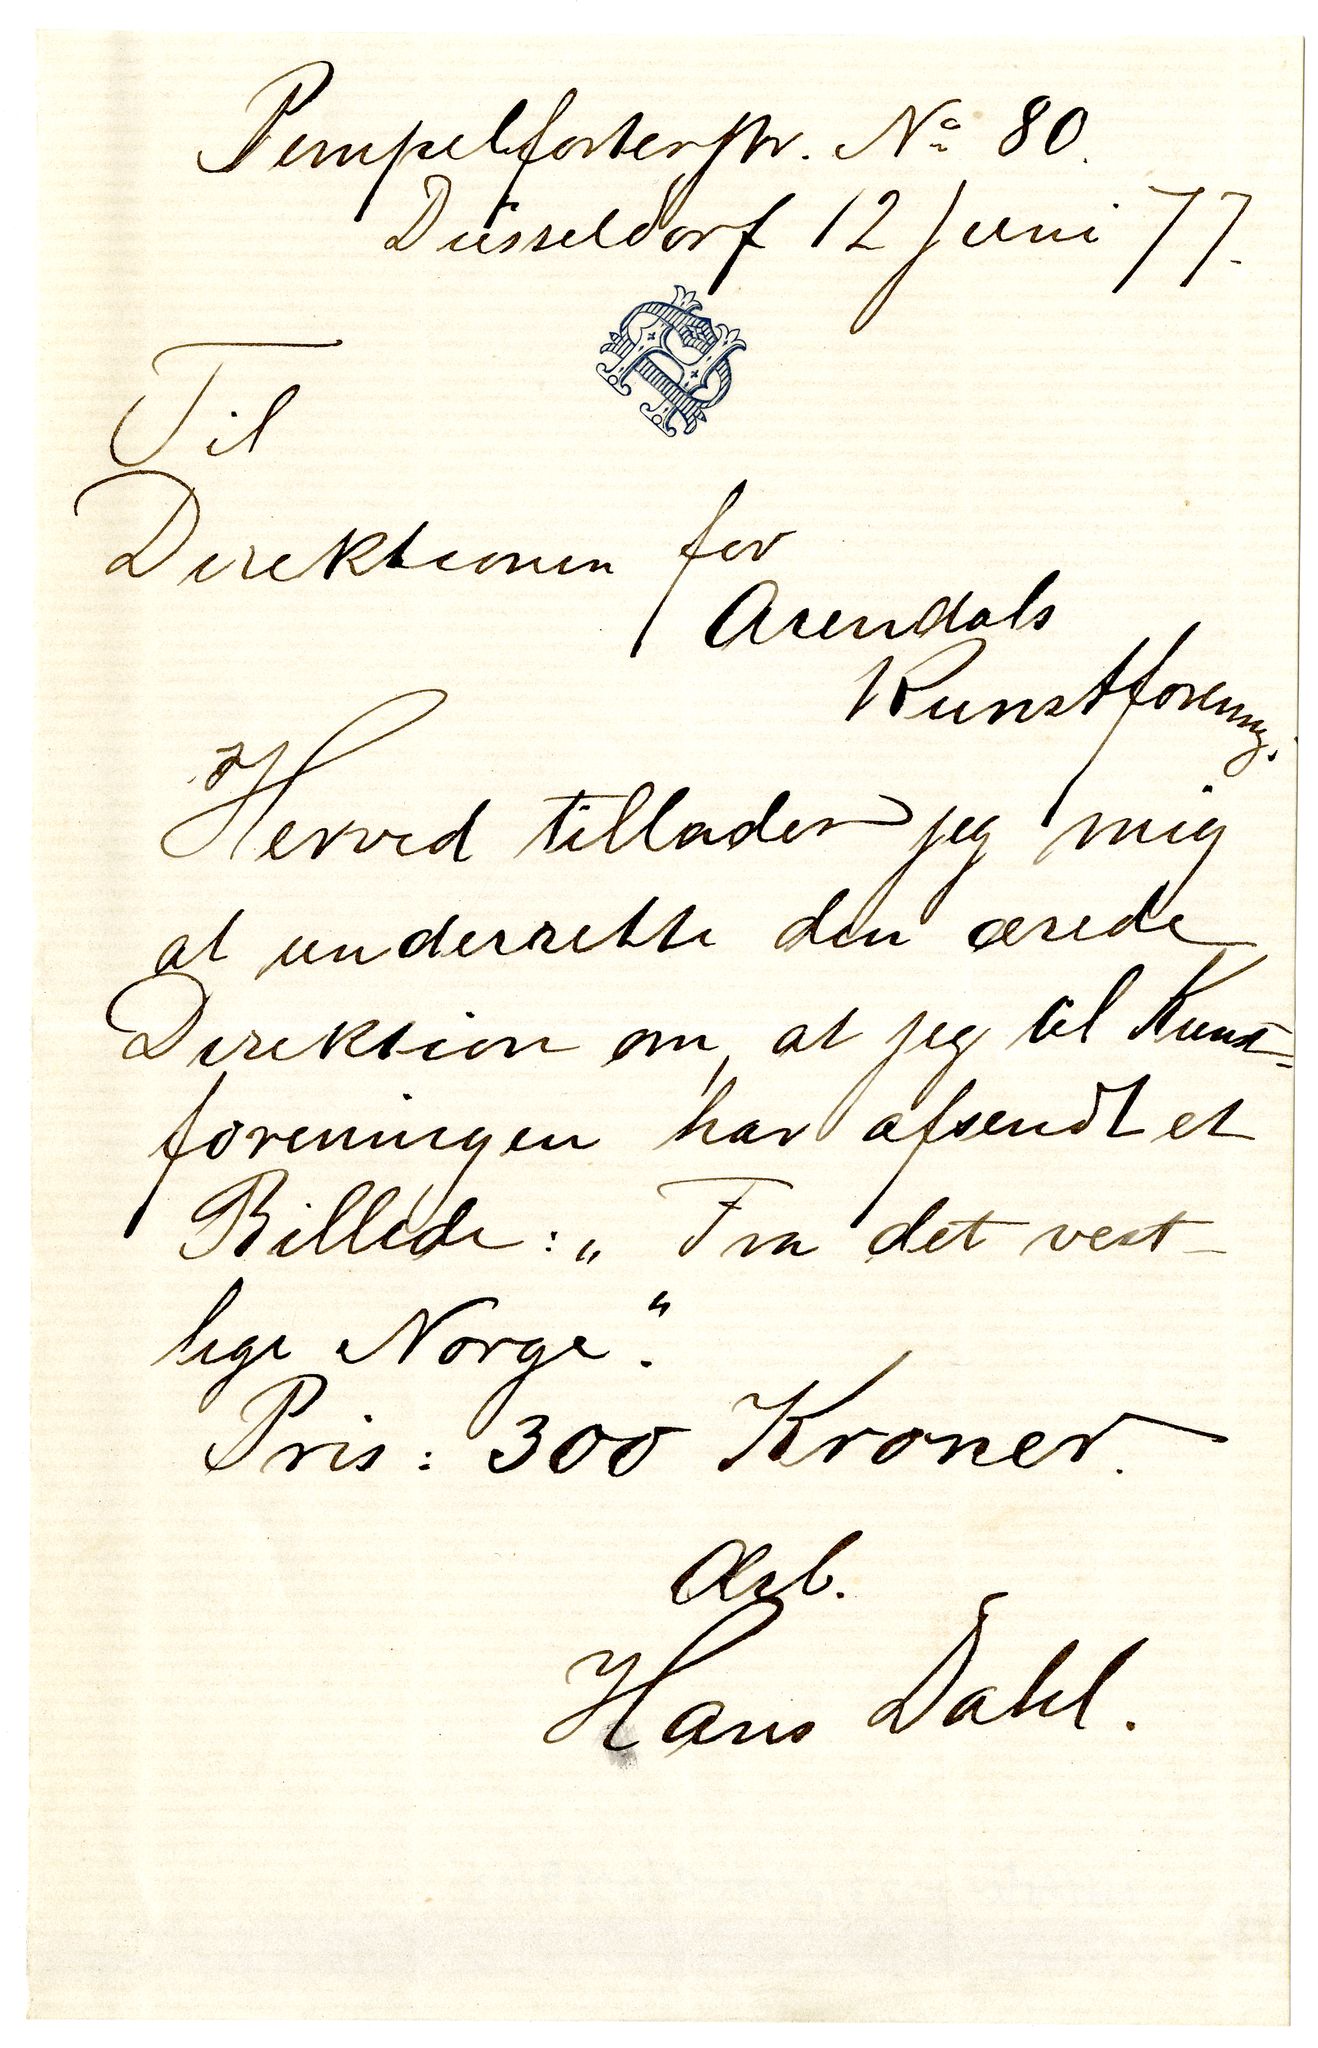 Pempelforterstr. No 80.
Düsseldorf 12 Juni 77.
Til
Direktionen for
Arendals
Kunstforening.
Herved tillader jeg mig
at underrette den ærede
Direktion om, at jeg til Kunst=
foreningen har afsendt et
Billede: „Fra det vest-
lige Norge“.
Pris: 300 Kroner.
Ærb.
Hans Dahl.